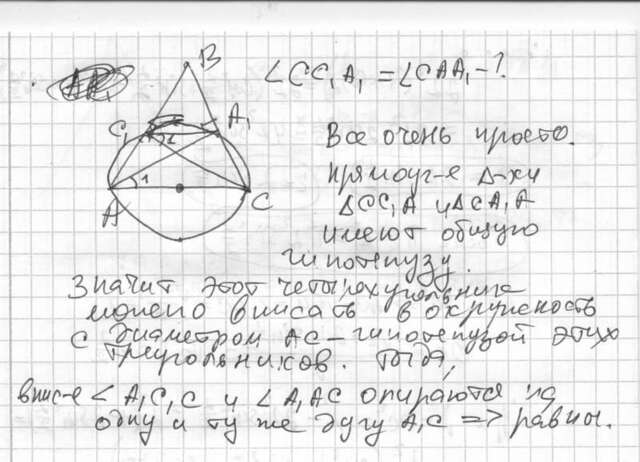 B
∠CC₁A₁ = ∠CAA₁ - ?
C₁
A₁
2
1
A
C
Все очень просто.
Прямоуг-е Δ-ки
ΔCC₁A и ΔCA₁A
имеют общую
гипотенузу.
Значит этот четырехугольник
можно вписать в окружность
с диаметром AC - гипотенузой этих
треугольников. Тогда,
впис-е ∠ A₁C₁C и ∠ A₁AC опираются на
одну и ту же дугу A₁C => равны.